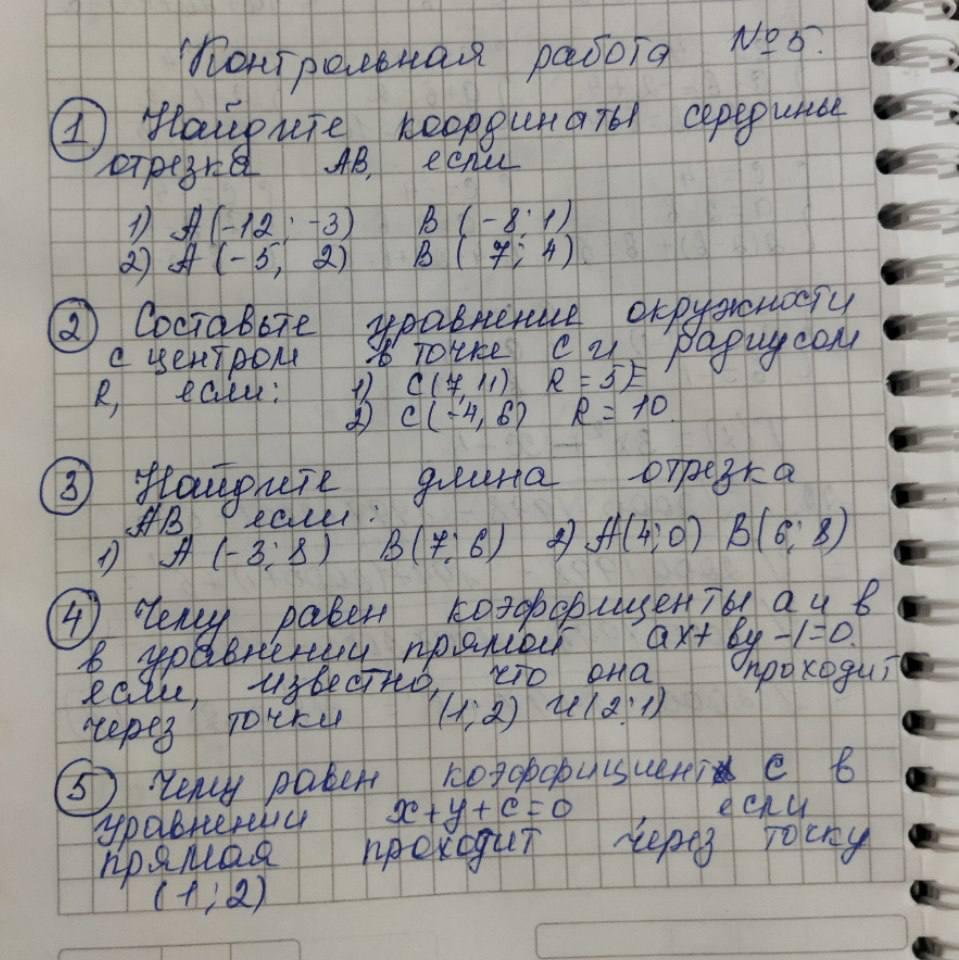 Контрольная работа №5.
① Найдите координаты середины
отрезка АВ, если
1) А(-12; -3) В(-8; 1)
2) А(-5; 2) В(7; 4)
② Составьте уравнение окружности
с центром в точке С и радиусом
R, если: 1) С(7, 11) R = 5
2) С(-4, 6) R = 10.
③ Найдите длина отрезка
АВ если:
1) А(-3; 8) В(7; 6) 2) А(4; 0) В(6; 8)
④ Чему равен коэффициенты а и в
в уравнении прямой ах+ву-1=0.
если, известно, что она проходит
через точки (1; 2) и (2; 1)
⑤ Чему равен коэффициент с в
уравнении х+у+с=0, если
прямая проходит через точку
(1; 2)